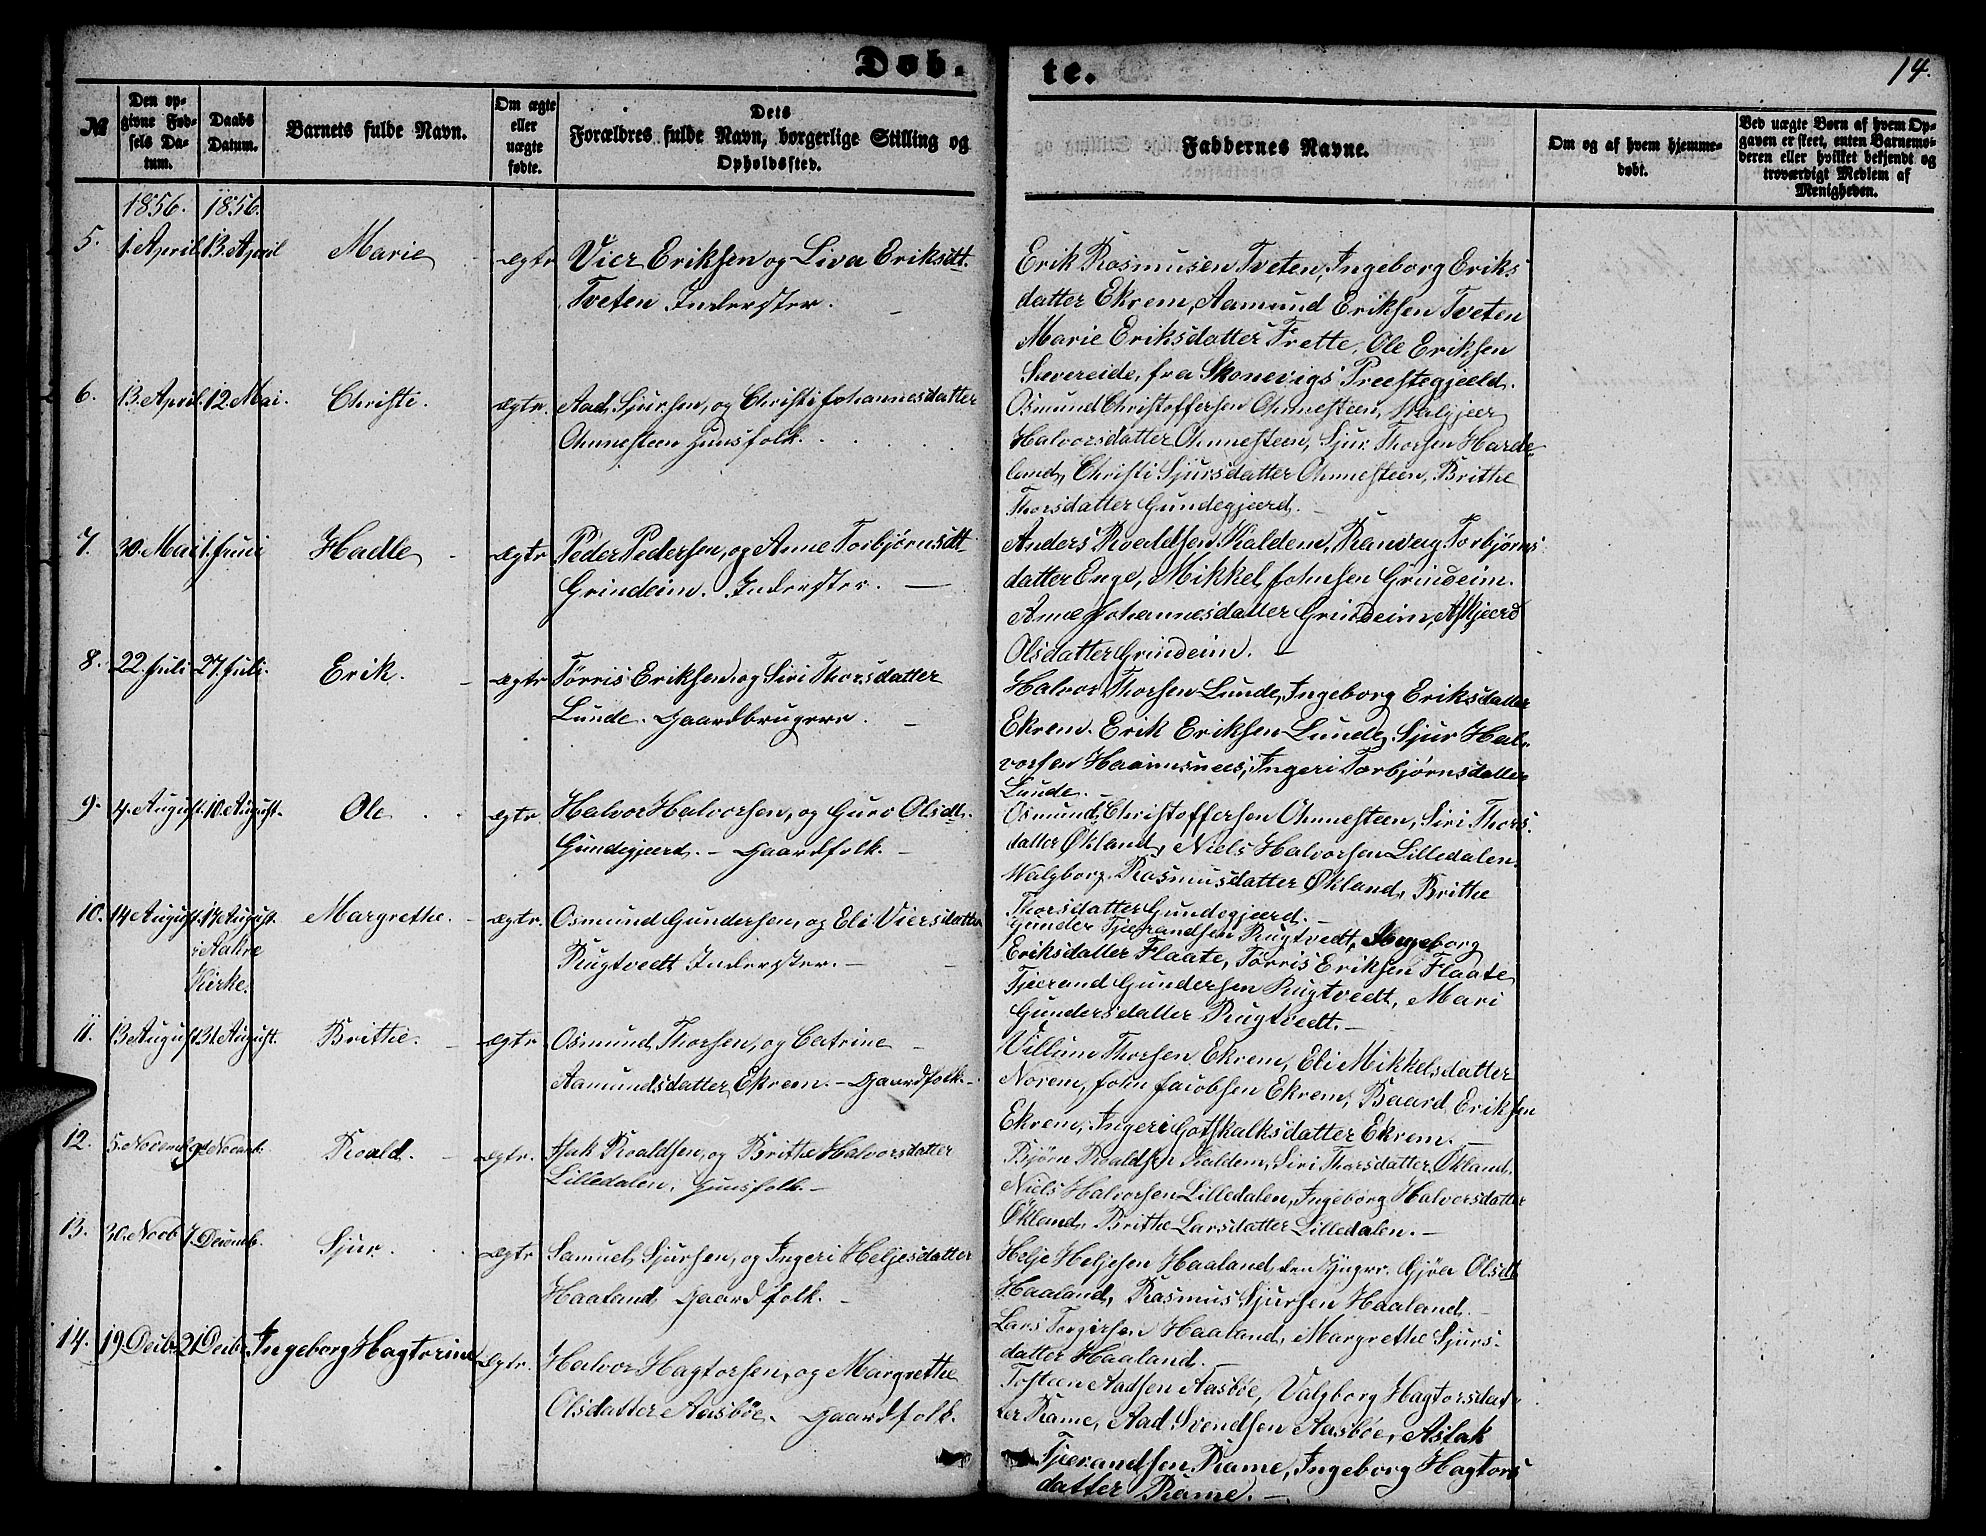 Døb-
te.
14.
№
Den op-
givne Fød-
sels Da-
tum.
Daabs
Datum.
Barnets fulde Navn.
Om ægte
eller
uægte
fødte.
Dets
Forældres fulde Navn, borgerlige Stilling og
Opholdssted.
Faddernes Navne.
Om og af hvem hjemme-
døbt.
Ved uægte Børn af hvem Op-
gaven er skeet, enten Barnemo-
deren eller hvilket bekjendt og
troværdigt Medlem af
Menigheden.
1856. 1856.
5. 1. April 13. April Marie ægte Vier Eriksen og Liva Eriksdtt.
Tveten Inderster.
Erik Rasmusen Tveten, Ingeborg Eriks
datter Ekrem, Aamund Eriksen Tveten
Marie Eriksdatter Frette, Ole Eriksen
Sævereide, fra Skonevigs Præstegjæld.
6. 13. April 12. Mai. Christi. ægte. Aad Sjursen, og Christi Johannesdatter
Ohnnesteen Huusfolk.
Osmund Christoffersen Ohnnesteen,
Halvorsdatter Ohnnesteen, Sjur Thorsen Harde-
land, Christi Sjursdatter Ohnnesteen, Brithe
Thorsdatter Gundegjerd.
7. 30. Mai 1. Juni Hadle ægte Peder Pedersen, og Anne Torbjørnsdt
Grindeim. Inderster.
Anders Roaldsen Kaldem, Ranveig Torbjørns
datter Enge, Mikkel Johnsen Grindeim.
Anne Johannesdatter Grindeim, Askjærd
Olsdatter Grindeim.
8. 22. Juli 27. Juli. Erik. ægte Tørris Eriksen, og Siri Thorsdatter
Lunde. Gaardbrugere.
Halvor Thorsen Lunde, Ingeborg Eriksdatter
Ekrem. Erik Eriksen Lunde, Sjur Hal-
vorsen Haaimsnees, Ingeri Torbjørnsdatter
Lunde.
9. 4. August. 10. August. Ole ægte. Halvor Halvorsen, og Guro Olsdt.
Gundegjerd. - Gaardfolk. -
Osmund Christoffersen Ohnnesteen, Siri Thors-
datter Økland, Niels Halvorsen Lilledalen.
Walgborg Rasmusdatter Økland, Brithe
Thorsdatter Gundegjerd.
10. 14 August. 17. August. Margrethe. ægte. Osmund Gundersen, og Eli Viersdatter
i Aakre
Kirke.
Rugtvedt Inderster. -
Gunder Tjerandsen Rugtvedt, Ingeborg
Eriksdatter Flaate, Tørris Eriksen Flaate
Tjerand Gundersen Rugtvedt, Mari
Gundersdatter Rugtvedt. -
11. 13 August 31. August. Brithe. ægte Osmund Thorsen, og Catrine
Aamundsdatter Ekrem. - Gaardfolk. -
Villum Thorsen Ekrem, Eli Mikkelsdatter
Norem, John Jacobsen Ekrem, Baard Eriksen
Ekrem, Ingeri Gotskalksdatter Ekrem.
12. 5. Novemb. 9de Novemb. Roald. ægte. Isak Roaldsen, og Brithe Halvorsdatter
Lilledalen. Huusfolk. -
Bjørn Roaldsen Kaldem, Siri Thorsdatter Økland.
Niels Halvorsen Lilledalen, Ingeborg Halvorsdatter
Økland, Brithe Larsdatter Lilledalen. -
13. 30. Novb. 7. Decemb. Sjur. ægte Samuel Sjursen, og Ingeri Heljesdatter
Haaland Gaardfolk. -
Helje Heljesen Haaland, den yngre. Gjøa Olsdt.
Haaland, Rasmus Sjursen Haaland.
Lars Torgirsen Haaland, Margrethe Sjurs-
datter Haaland. -
14. 19 Decbr. 21 Decbr. Ingeborg Hagtorine ægte. Halvor Hagtorsen, og Margrethe
Olsdatter Aasbøe. Gaardfolk.
Tosteen Aadsen Aasbøe, Valgborg Hagtorsdat-
ter Rame, Aad Svendsen Aasbøe, Aslak
Tjerandsen Rame, Ingeborg Hagtors
datter Rame. -